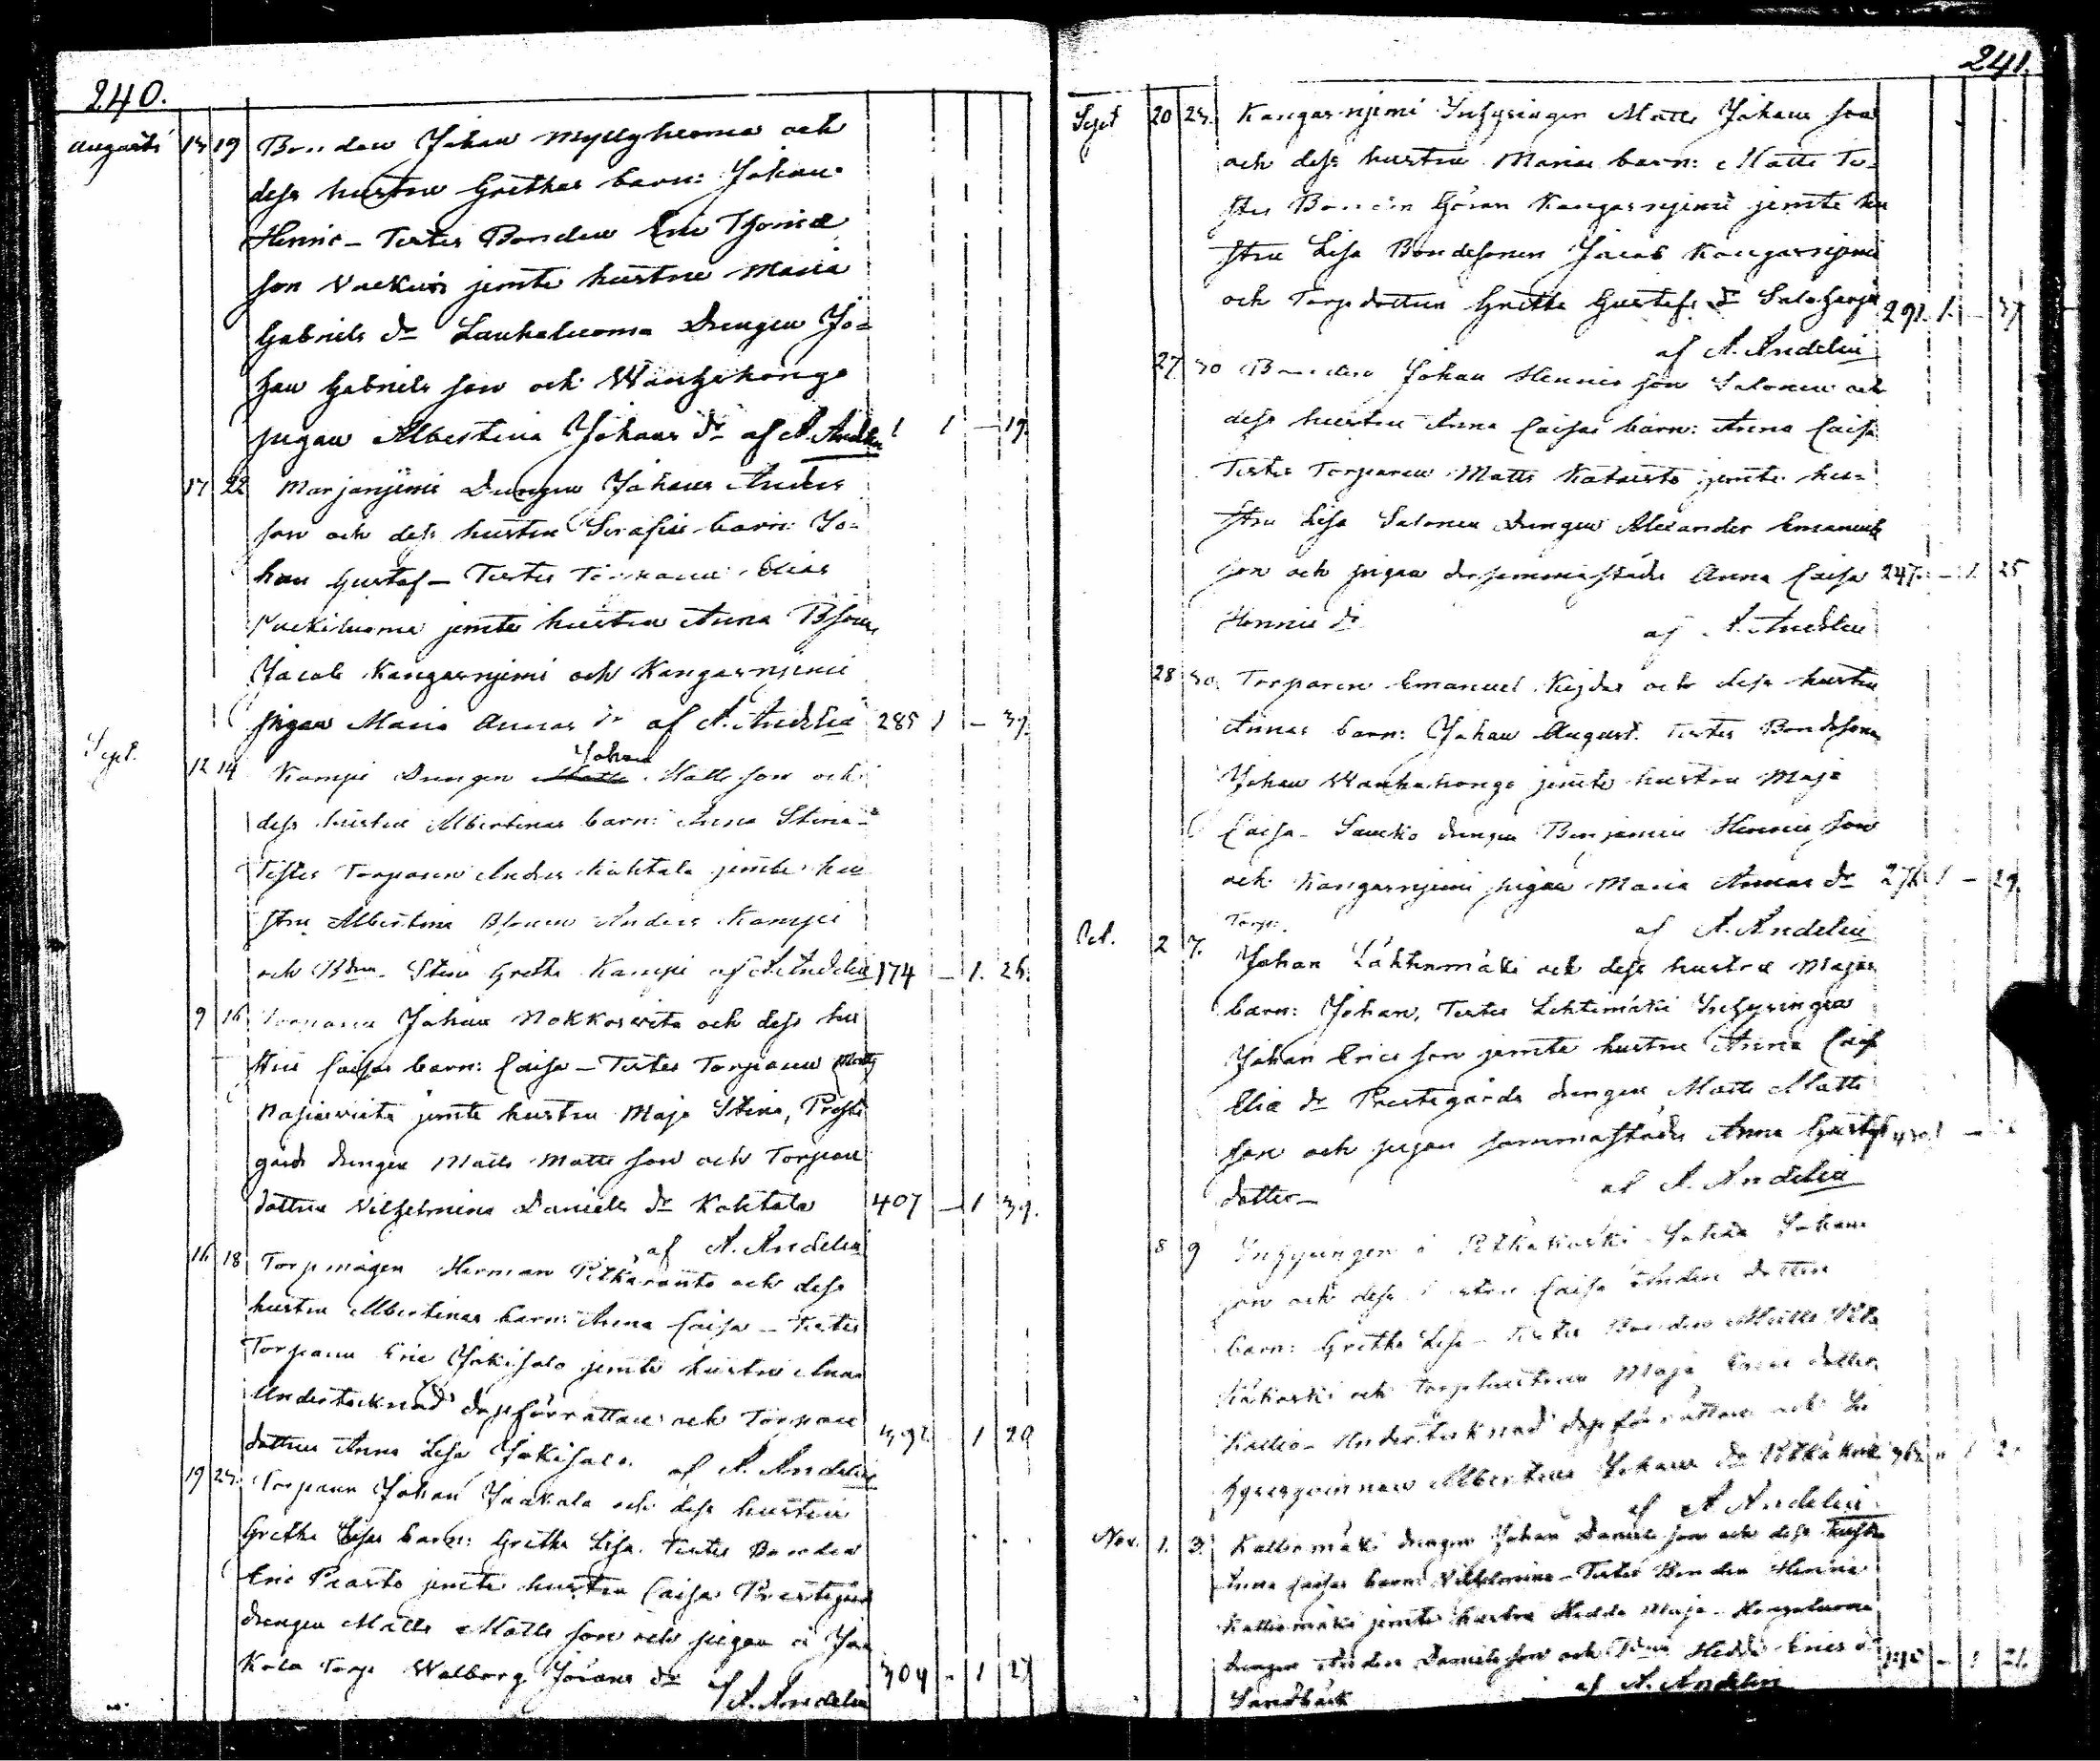 240.
Augusti 15 19 Bonden Johan Myllyluoma och
dess hustru Grethas barn: Johan
Henric – Testes Bonden Eric Thomæ
son jemte hustru Maria
Gabriels dr Laukaluoma Drengen Jo=
han Gabriels son och Wanhahongo
pigan Albertina Johans dr af A. Andelin 1 1 – 19.
17 22 Marjanjemi Drengen Johan Anders
son och dess hustru Serafias barn: Jo=
han Gustaf – Testes Torparen Elias
jemte hustru Anna Bson
Jacob Kangasnjemi och Kangasnjemi
pigan Maria Annas dr af A. Andelin 285 1 – 39.
Sept. 12 14 Kampi Drengen Johan Matts son och
dess hustru Albertinas barn: Anna Stina –
Testes Torparen Anders Kahtala jemte hu
stru Albertina Bsonen Anders Kampi
och Bdtr Stina Gretha Kampi af A. Andelin 174 – 1. 26.
9 16 Torparen Johan Nokkoswita och dess hu
stru Caisas barn: Caisa – Testes Torparen Matts
jemte hustru Maja Stina, Preste
gårds drengen Matts Matts son och Torpare
dottren Vilhelmina Daniels dr Kahtala 407 – 1 39.
af A. Andelin
16 18 Torpmågen Herman Pitkäranta och dess
hustru Albertinas barn: Anna Caisa – Testes
Torparen Eric Jokisalo jemte hustru Anna
Undertecknad dopförrättare och Torpare
dottren Anna Lisa Jokisalo. 392. 1 29
af A. Andelin
19 23. Torparen Johan Jaakola och dess hustru
Gretha Lisas barn: Gretha Lisa. Testes Bonden
Eric Peasto jemte hustru Caisa Prestegårds
drengen Matts Matts son och pigan å Jaa
kola Torp Walborg Johans dr 304 – 1 27
af A. Andelin
241.
Sept 20 23. Kangasnjemi Inhysingen Matts Johans son
och dess hustru Marias barn: Matts Te=
stes Bonden Göran Kangasnjemi jemte hu
stru Lisa Bondesonen Jacob Kangasnjemi
och Torpdottren Gretha Gustafs dr Saloharju 291. 1. – 37
af A. Andelin
27 30 Bonden Johan Henrics son Salonen och
dess hustru Anna Caisas barn: Anna Caisa
Testes Torparen Matts Kataisto jemte hu=
stru Lisa Salonen Drengen Alexander Emanuels
son och pigan dersammastädes Anna Caisa 247. – 1. 25
Henrics dr af A. Andelin
28 30. Torparen Emanuel Kejdas och dess hustru
Annas barn: Johan August. Testes Bondsonen
Johan Wanhahongo jemte hustru Maja
Caisa – Saucko drengen Benjamin Henrics son
och Kangasnjemi pigan Maria Annas dr 276 1 – 29.
af A. Andelin
Oct. 2 7. Torp. Johan Lähtenmäki och dess hustru Majas
barn: Johan, Testes Lehtimäki Inhysingen
Johan Erics son jemte hustru Anna Caisa
Eliæ dr Prestegårds drengen Matts Matts
son och pigan sammastädes Anna Gustafs
dotter – af A. Andelin
8 9 Inhysingen å Pitkäkoski Johan Johans
son och dess hustru Caisa Anders dotters
barn: Gretha Lisa – Testes Bonden Matts Pitkä
käkoski och torphustrun Maja Erics dotter
Kallio – Undertecknad dopförrättare och In
hysesqvinnan Albertina Johans dr Pitkäkoski
af A. Andelin
Nov. 1. 3. Kalliomäki drengen Johan Daniels son och dess hustru
Anna Caisas barn: Vilhelmina – Testes Bonden Henric
Kalliomäki jemte hustru Hedda Maja –
drengen Anders Danielsson och Hedda Erics dr
Sandbäck af A. Andelin 21.